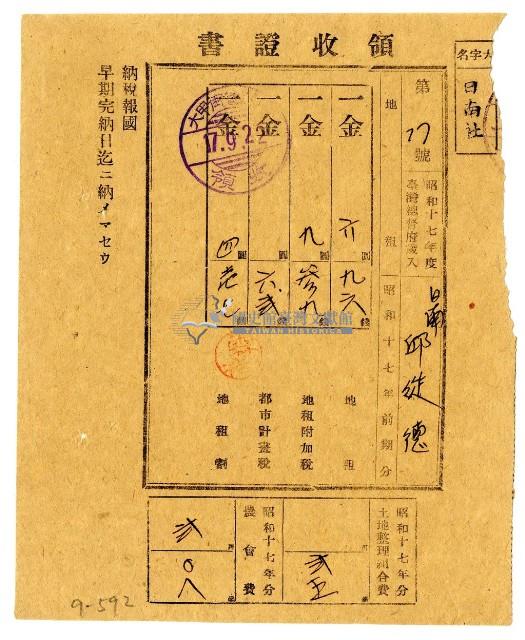 領收證書
大字名
日南社
第 17 號
昭和十七年度
臺灣總督府歲入
地租
昭和十七年前期分
日南
邱 德
一金 六 圓 九六 錢 地租
一金 九 圓 參九 錢 地租附加稅
一金 圓 六貳 錢 都市計畫稅
一金 四 圓 地租割
17.9.22
領
納稅報國
早期完納日迄ニ納メマセウ
昭和十七年分
土地整理組合費
貳五
昭和十七年分
農會費
貳
〇八
國史館臺灣文獻館
TAIWAN HISTORICA
9-592